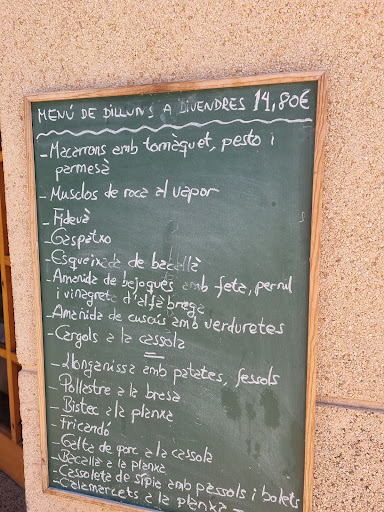 MENÚ DE DILLUNS A DIVENDRES 14,80€
- Macarrons amb tomàquet, pesto i
parmesà
- Musclos de roca al vapor
- Fideuà
- Gaspatxo
- Esqueixada de bacallà
- Amanida de bajoques amb feta, pernil
i vinagreta d'alfàbrega
- Amanida de cuscús amb verduretes
- Cargols a la cassola
- Llonganissa amb patates, fesols
- Pollastre a la brasa
- Bistec a la planxa
- Fricandó
- Galta de porc a la cassola
- Bacallà a la planxa
- Cassoleta de sípia amb pèssols i bolets
- Calamarcets a la planxa -